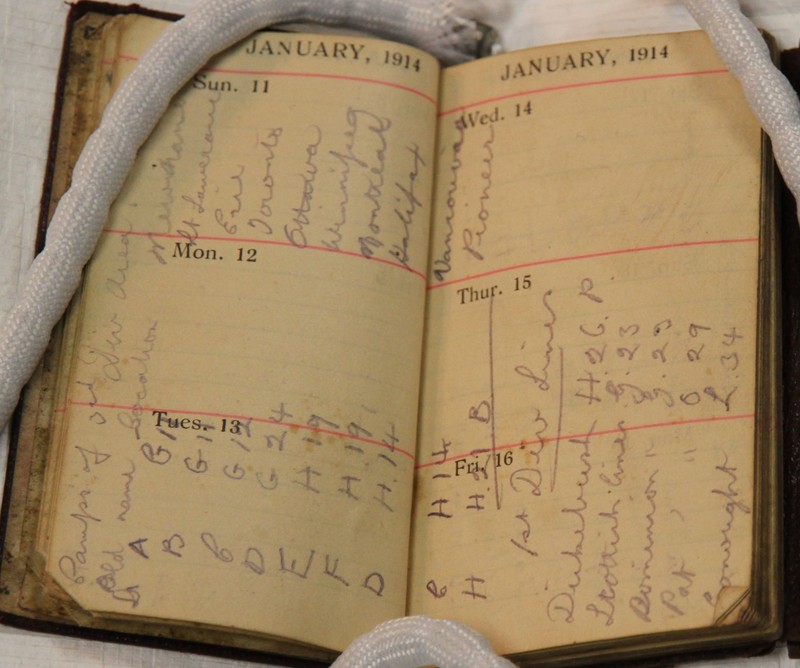 JANUARY, 1914
Sun. 11
Mon. 12
Tues. 13
Camps of Div Area
Old name Location
A G
B G 11
C G 12 Erie
D G 24 Toronto
E H 19 Ottawa
F H 19 Winnipeg
D H. 14 Montreal
Halifax
JANUARY, 1914
Wed. 14
Thur. 15
Fri. 16
C H 14 Vancouver
H H B Pioneer
1st Div Lines
Dickebush H. 26. P
Scottish lines G. 23
Dominion " G. 23
Pat " O 29
Connought L. 34